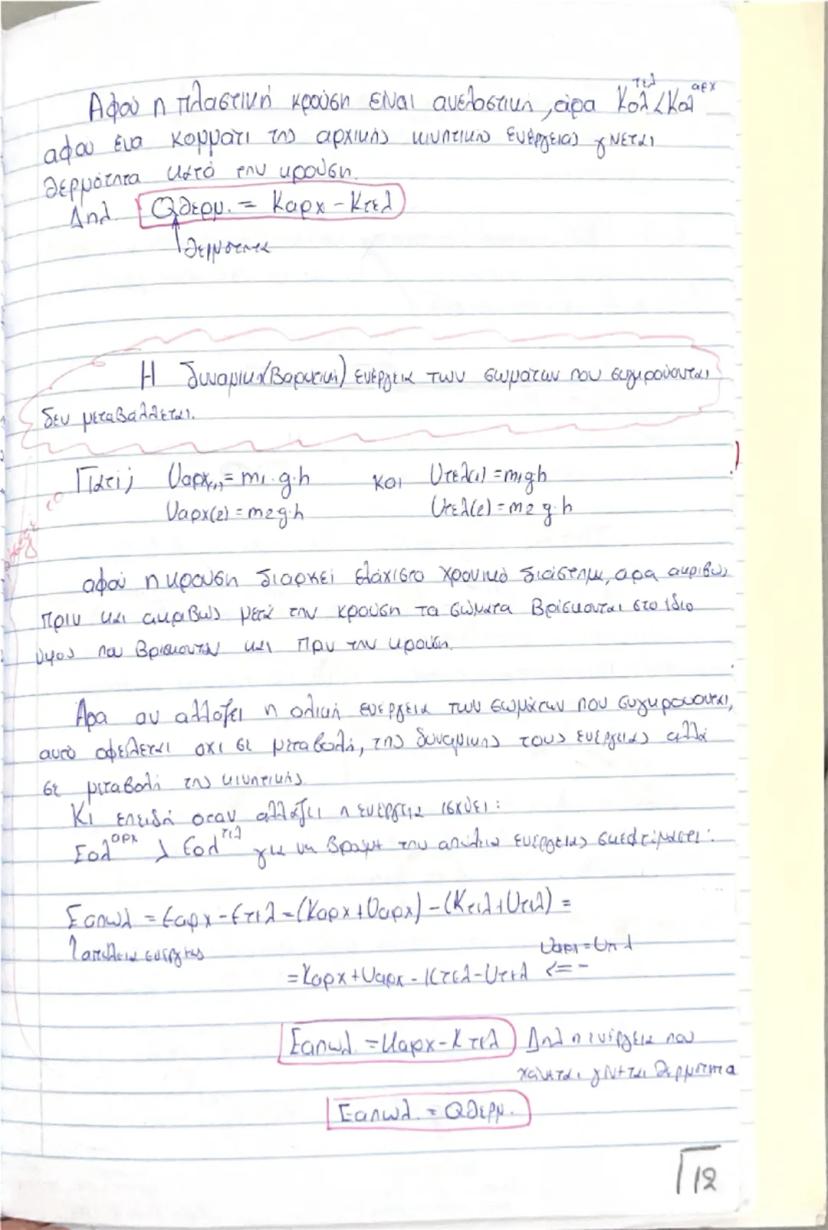 Αφού η πλαστική κρούση είναι ανελαστική, άρα Κολ^τελ < Κολ^αρχ
αφού ένα κομμάτι της αρχικής κινητικής ενέργειας γίνεται
θερμότητα κατά την κρούση.
Δηλ. Qθερμ. = Kαρχ - Kτελ
θερμότητα
Η δυναμική (Βαρυτική) ενέργεια των σωμάτων που συγκρούονται
δεν μεταβάλλεται.
Γιατί; Uαρχ(1) = m1·g·h και Uτελ(1) = m1gh
Uαρχ(2) = m2g·h Uτελ(2) = m2g·h
αφού η κρούση διαρκεί ελάχιστο χρονικό διάστημα, άρα ακριβώς
πριν και ακριβώς μετά την κρούση τα σώματα βρίσκονται στο ίδιο
ύψος που βρίσκονταν και πριν την κρούση.
Άρα αν αλλάζει η ολική ενέργεια των σωμάτων που συγκρουονται,
αυτό οφείλεται οχι σε μεταβολή, της δυναμικης τους ενέργειας αλλά
σε μεταβολή της κινητικής
Κι επειδή οταν αλλάζει η ενέργεια ισχύει:
Εολ^αρχ > Εολ^τελ για να βρουμε την απώλεια ενέργειας σκεφτόμαστε:
Εαπωλ = Εαρχ - Ετελ = (Kαρχ + Uαρχ) - (Kτελ + Uτελ) =
απώλεια ενέργειας
Uαρχ = Uτελ
= Kαρχ + Uαρχ - Kτελ - Uτελ <==
Εαπωλ = Kαρχ - Kτελ Δηλ η ενέργεια που
χάνεται γίνεται θερμότητα
Εαπωλ. = Qθερμ.
12